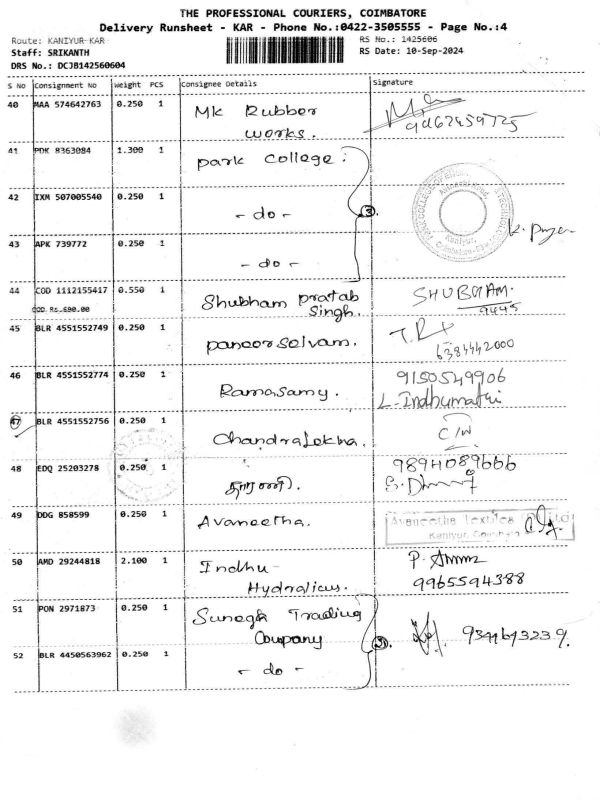 THE PROFESSIONAL COURIERS, COIMBATORE
Delivery Runsheet - KAR - Phone No.:0422-3505555 - Page No.:4
Route: KANIYUR-KAR
RS No.: 1425606
Staff: SRIKANTH
RS Date: 10-Sep-2024
DRS No.: DCJB142560604
S No Consignment No Weight PCS Consignee Details Signature
40 MAA 574642763 0.250 1 Mk Rubber works.
41 PDK 8363084 1.300 1 park college.
42 IXM 507005540 0.250 1 - do -
43 APK 739772 0.250 1 - do -
44 COD 1112155417 0.550 1 Shubham pratab Singh. SHUBHAM.
COD Rs.690.00 9445
45 BLR 4551552749 0.250 1 paneerselvam.
6384442000
46 BLR 4551552774 0.250 1 Ramasamy. 9150549906
L. Indhumathi
47 BLR 4551552756 0.250 1 Chandralekha. C/W
48 EDQ 25203278 0.250 1 தாரணி. 9894089666
49 DDG 858599 0.250 1 Avaneetha. Avaneetha textiles
Kaniyur,
50 AMD 29244818 2.100 1 Indhu Hydralicus.
9965594388
51 PON 2971873 0.250 1 Trading Company
52 BLR 4450563962 0.250 1 - do -